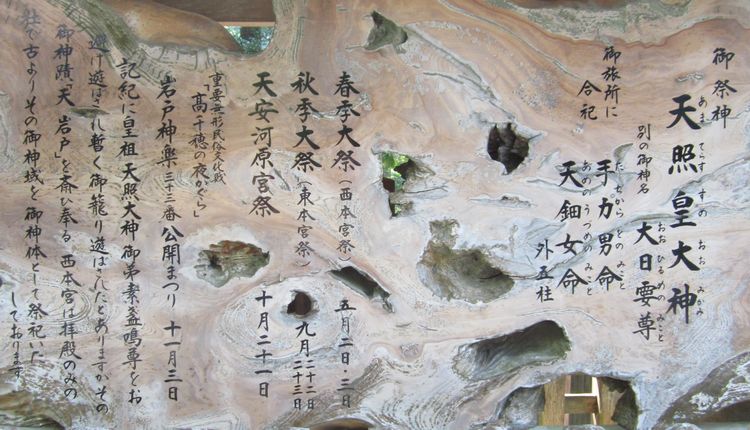 御祭神
天照皇大神
あまてらすすのおおみかみ
別の御神名 大日孁尊
おおひるめのみこと
御旅所に
合祀
手力男命
たぢからをのみこと
天鈿女命
あめのうづめのみこと
外五柱
春季大祭(西本宮祭) 五月二日・三日
秋季大祭(東本宮祭) 九月二十二日
二十三日
天安河原宮祭 十月二十一日
重要無形民俗文化財
「高千穂の夜かぐら」
岩戸神楽三十三番公開まつり 十一月三日
記紀に皇祖天照大神御弟素盞鳴尊をお
避け遊ばされ暫く御籠り遊ばされたとありますがその
御神蹟「天岩戸」を斎ひ奉る 西本宮は拝殿のみの
社で古よりその御神域を御神体として祭祀いた
しております